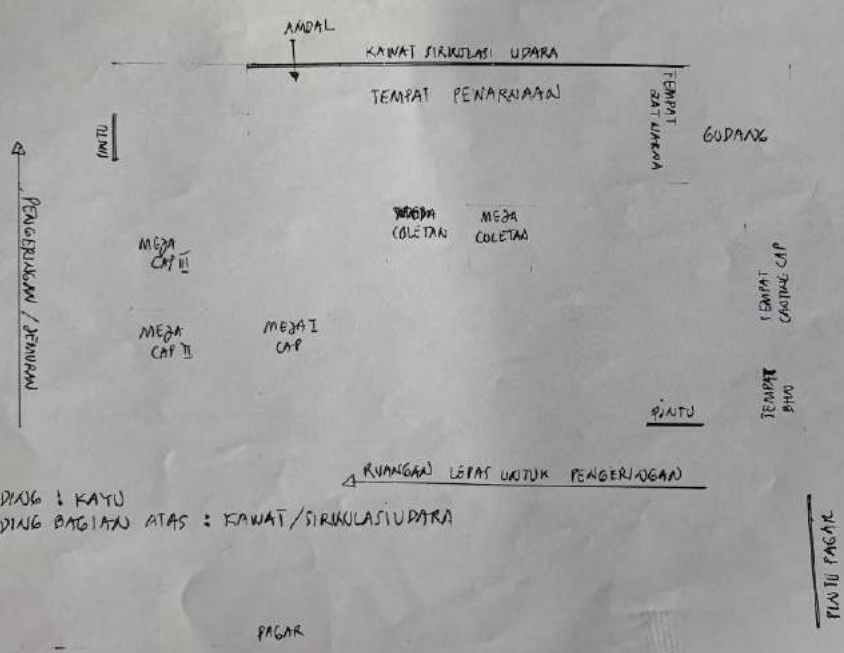 AMDAL
KAWAT SIRKULASI UDARA
TEMPAT PEWARNAAN
TEMPAT
ZAT WARNA
GUDANG
PINTU
PENGERINGAN / JEMURAN
COLETAN
MEJA
COLETAN
MEJA
CAP III
MEJA
CAP II
MEJA I
CAP
TEMPAT
CANTING CAP
TEMPAT
BHN
PINTU
RUANGAN LEPAS UNTUK PENGERINGAN
DING : KAYU
DING BAGIAN ATAS : KAWAT/SIRKULASI UDARA
PINTU PAGAR
PAGAR